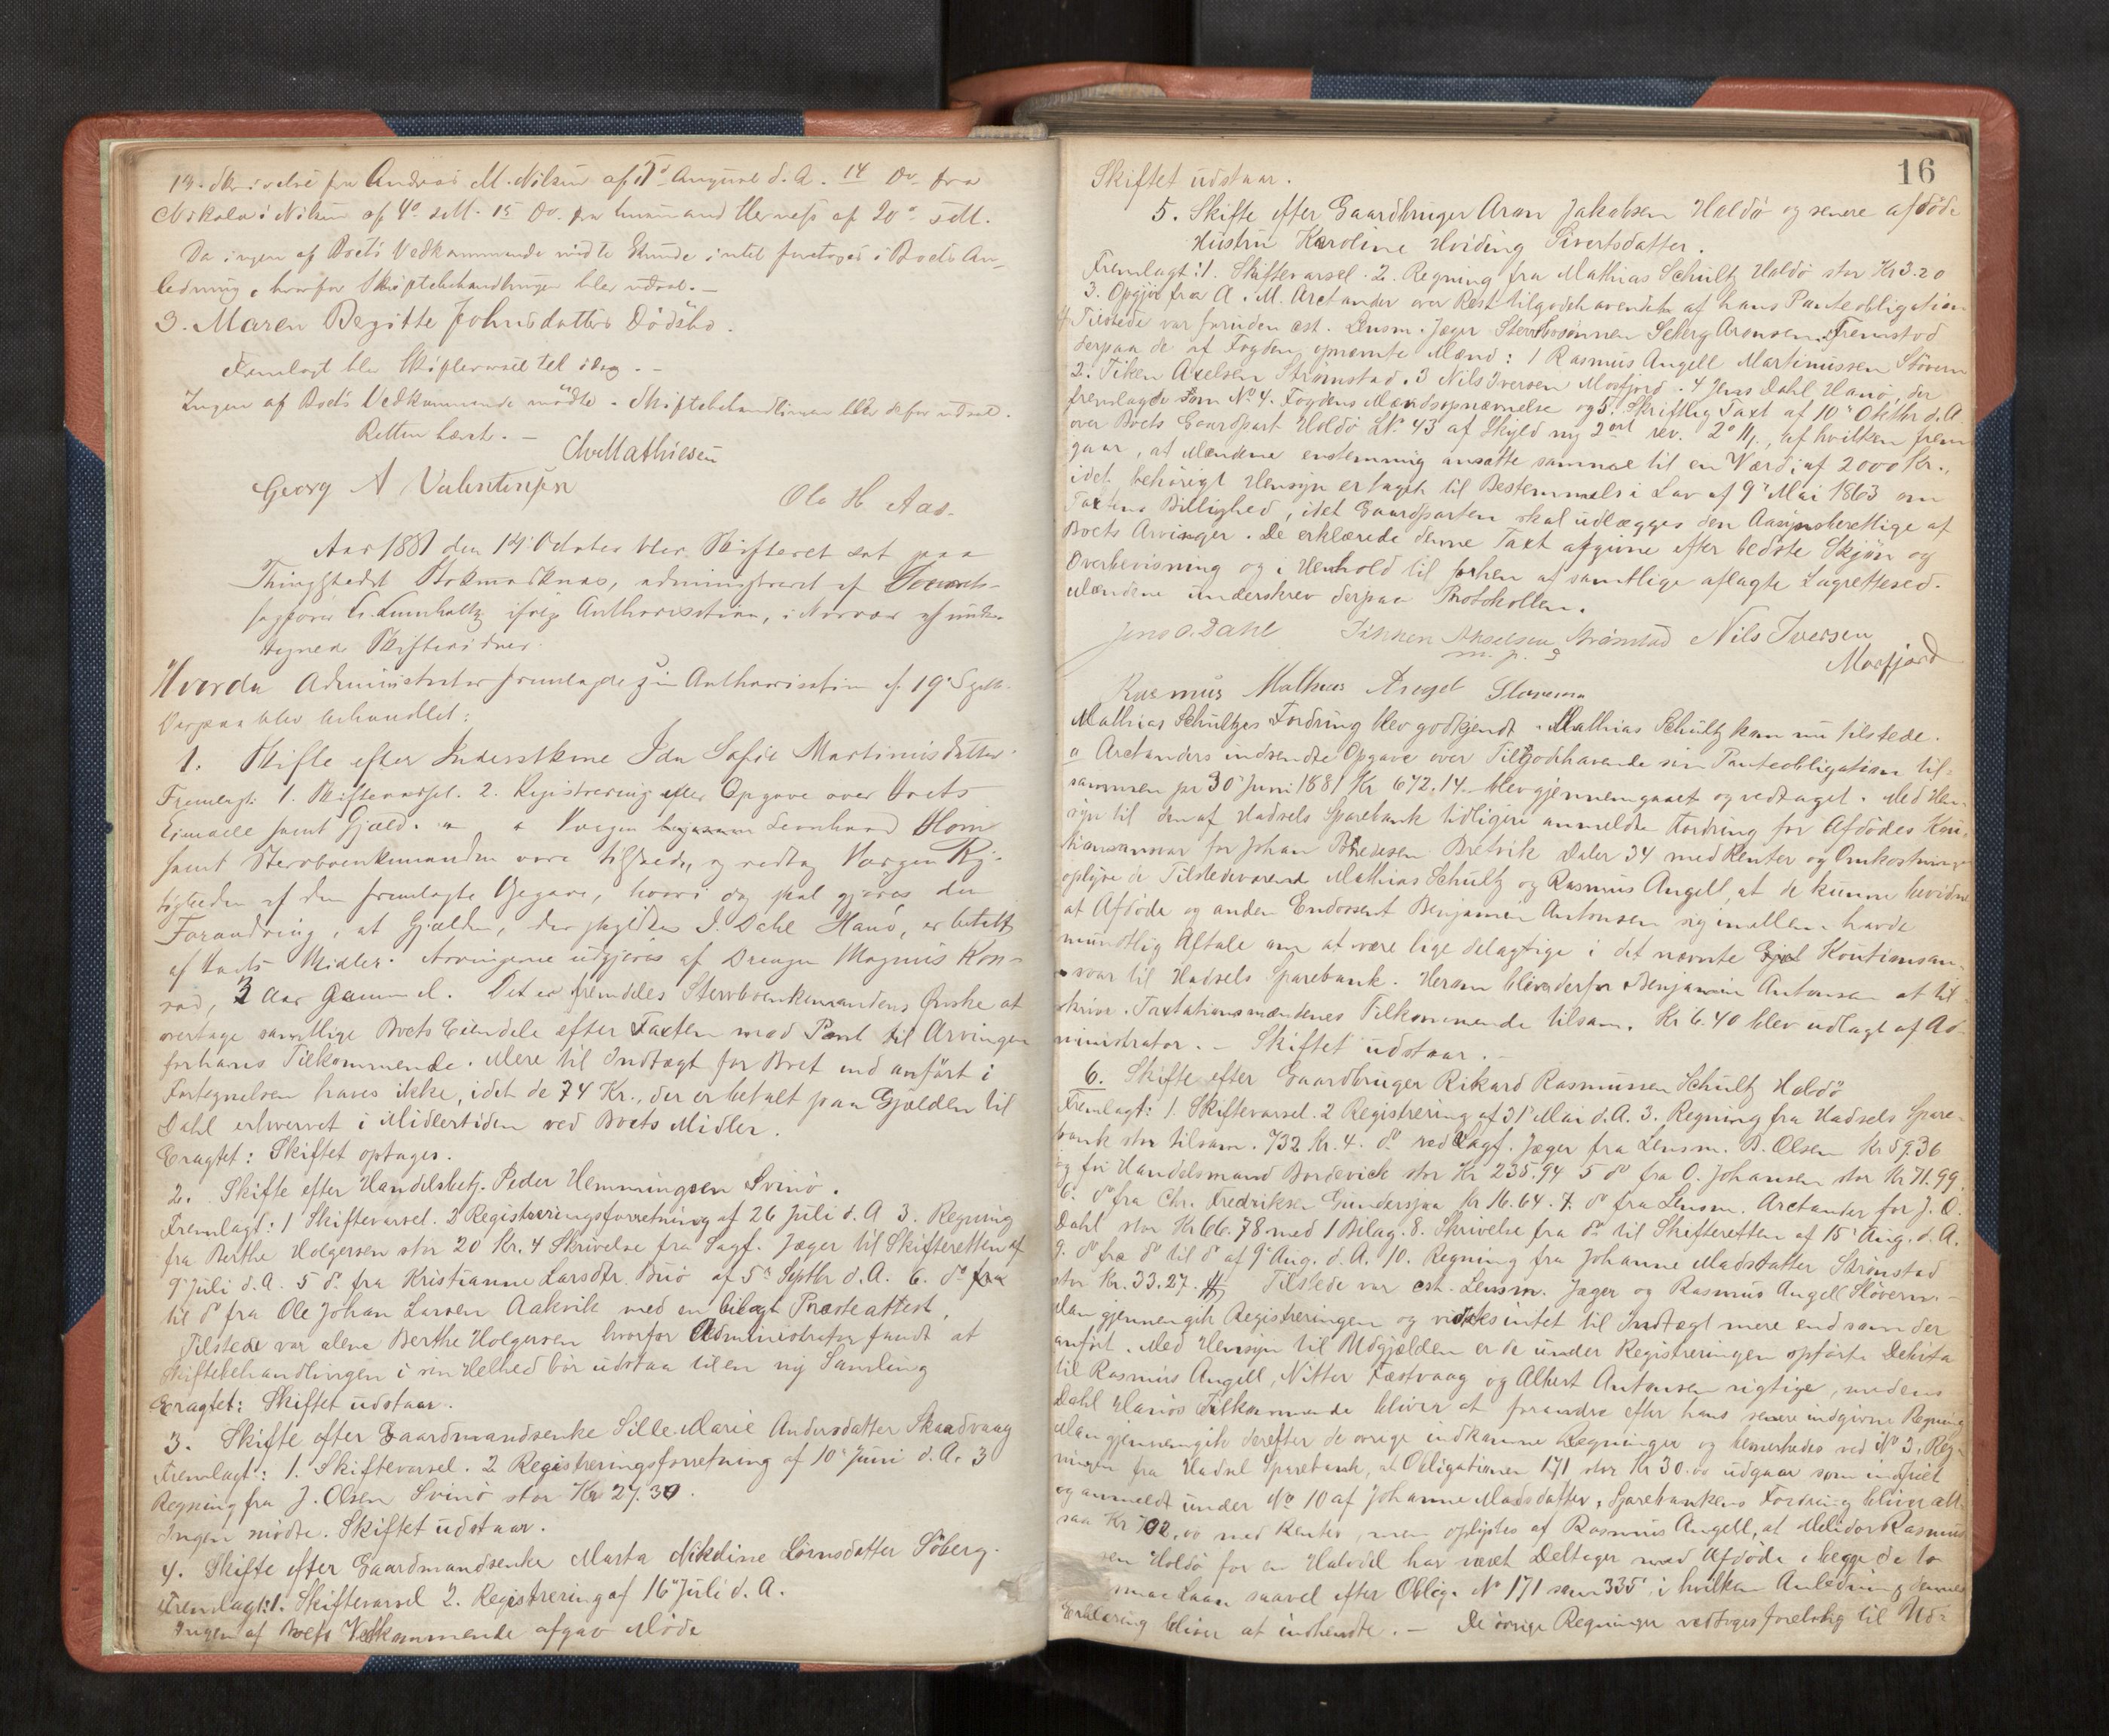 13. Skrivelse fra Andreas M. Nilsen af 1ste August d. A. 14 Do fra
Nikolai Nilsen af 4de s. M. 15 Do fra Husmand Hernes af 20de s. M.
Da ingen af Boets Vedkommende mødte kunde intet foretages i Boets An-
ledning, hvorfor Skiftebehandlingen blev udsat. —
3. Maren Begitte Johnsdatters Dödsbo.
Fremlagt blev Skiftevarsel til idag. —
Ingen af Boets Vedkommende mödte. Skiftebehandlingen blev derfor udsat.
Retten hævet. —
Mathiesen
Georg A Valentinsen
Ole H. Aas.
Aar 1881 den 14 October blev Skifteret sat paa
Thingstedet Stokmarknæs, administreret af
sagförer ifölge Authorisation, i Nærvær af under-
tegnede Skiftevidner.
Hvorda Administrator fremlagde sin Authorisation af 19 Septbr.
Derpaa blev behandlet:
1. Skifte efter Inderstkone Ida Sofie Martinusdatter.
Fremlagt: 1. Skiftevarsel. 2. Registrering eller Opgave over Boets
Eiendele samt Gjæld. Værgen Leonhard Horn
samt Sterboenkemanden vare tilstede, og vedtog Værgen Rig-
tigheden af den fremlagte Opgave, hvori dog skal gjøres den
Forandring, at Gjælden, der skyldtes J. Dahl Hanö, er betalt
af Boets Midler. Arvingerne udgjøres af Drengen Magnus Kon-
rad, 3 Aar gammel. Det er fremdeles Sterboenkemandens Ønske at
overtage samtlige Boets Eiendele efter Taxten mod Pant til Arvingen
for hans Tilkommende. Mere til Indtægt for Boet end anført i
Fortegnelsen haves ikke, idet de 74 Kr., der er betalt paa Gjælden til
Dahl erhvervet i Midlertiden ved Boets Midler.
Eragtet: Skiftet optages.
2. Skifte efter Handelsbetj. Peder Hemmingsen Svinö.
Fremlagt: 1 Skiftevarsel. 2 Registreringsforretning af 26 Juli d. A 3. Regning
fra Berthe Holgersen stor 20 Kr. 4 Skrivelse fra Sagf. Jæger til Skifteretten af
9 Juli d. A. 5 do fra Kristianne Larsdtr. Buö af 5 Septbr d. A. 6. do fra
til do fra Ole Johan Larsen Aakvik med en bilagt Præsteattest.
Tilstede var alene Berthe Holgersen hvorfor Administrator fandt at
Skiftebehandlingen i sin Helhed bör udstaa til en ny Samling
Eragtet: Skiftet udstaar.
3. Skifte efter Gaardmandsenke Sille Marie Andersdatter Skaadvaag
Fremlagt: 1. Skiftevarsel. 2 Registreringsforretning af 10 Juni d. A. 3
Regning fra J. Olsen Svinö stor Kr 27.30.
Ingen mödte. Skiftet udstaar.
4. Skifte efter Gaardmandsenke Marta Nikoline Lörnsdatter Söberg.
Fremlagt: 1. Skiftevarsel 2. Registrering af 16 Juli d. A.
Ingen af Boets Vedkommende afgav Möde
16
Skiftet udstaar.
5. Skifte efter Gaardbruger Aron Jakobsen Haldö og senere afdöde
Hustru Karoline Hviding Sivertsdatter.
Fremlagt: 1. Skiftevarsel. 2. Regning fra Mathias Schultz Haldö stor Kr 3.20
3. Opgjör fra A. M. Arctander over Rest tilgodehavendet af hans Panteobligation
Tilstede var foruden cst. Lensm. Jæger Sterbosønnen Seberg Aronsen. Fremstod
derpaa de af Fogden opnævnte Mænd: 1 Rasmus Angell Martinussen Stövern
2. Tiken Axelsen Strömstad. 3 Nils Iversen Mosfjord. 4 Jens Dahl Hanö, der
fremlagde som No 4. Fogdens Mændsopnævnelse og 5. Skriftlig Taxt af 10 Oktbr d. A.
over Boets Gaardpart Haldö LN. 43 af Skyld ny 2 ort rev. 2 , af hvilken frem-
gaar, at Mændene enstemmig ansatte samme til en Værdi af 2000 Kr.,
idet behörigt Hensyn er taget til Bestemmelse i Lov af 9 Mai 1863 om
Taxtens Billighed, idet Gaardparten skal udlægges den Aasædesberettige af
Boets Arvinger. De erklærede denne Taxt afgivne efter bedste Skjön og
Overbevisning og i Henhold til forhen af samtlige aflagte Lagretteed.
Mændene underskrev derpaa Protokollen.
Jens O. Dahl Tikken Akselsen Strömstad Nils Iversen
m. p. s Mosfjord
Rasmus Mathias Angel Stövern
Mathias Schultzes Fordring blev godkjendt. Mathias Schultz kom nu tilstede.
Arctanders indsendte Opgave over Tilgodehavende sin Panteobligation til-
sammen pr 30 Juni 1881 Kr 672.14 blev gjennemgaaet og vedtaget. Med Hen-
syn til den af Hadsels Sparebank tidligere anmeldte Fordring for Afdödes Kau-
tionsansvar for Johan Pedersen Bretvik Daler 34 med Renter og Omkostninger
oplyse de Tilstedeværende Mathias Schultz og Rasmus Angell, at de kunne bevidne
at Afdöde og anden Endossent Benjamin Antonsen sig imellem havde
mundtlig Aftale om at være lige delagtige i det nævnte Kautionsan-
svar til Hadsels Sparebank. Herom bliver derfor Benjamin Antonsen at til-
skrive. Taxtationsmændenes Tilkommende tilsam. Kr 6.40 blev udlagt af Ad-
ministrator. — Skiftet udstaar. —
6. Skifte efter Gaardbruger Rikard Rasmussen Schultz Haldö
Fremlagt: 1. Skiftevarsel. 2 Registrering af 31 Mai d. A. 3. Regning fra Hadsels Spare-
bank stor tilsam. 732 Kr. 4. do ved Sagf. Jæger fra Lensm. B. Olsen Kr 59.36
og for Handelsmand Bordevick stor Kr 235.94 5 do fra O. Johansen stor Kr 71.99.
6. do fra Chr. Fredriksen Gunderstjaa Kr 16.64. 7. do fra Lensm. Arctander for J. O.
Dahl stor Kr 66.78 med 1 Bilag. 8. Skrivelse fra do til Skifteretten af 15 Aug. d. A.
9. do fra do til do af 9 Aug. d. A. 10. Regning fra Johanne Madsdatter Strömstad
stor Kr. 33.27. Tilstede var cst. Lensm. Jæger og Rasmus Angell Stövern. —
Man gjennemgik Registreringen og vidstes intet til Indtægt mere end som der
anfört. Med Hensyn til Udgjælden er de under Registreringen opförte Debita
til Rasmus Angell, Nitter Fæstvaag og Albert Antonsen rigtige, medens
Dahl Hanös Tilkommende bliver at forandre efter hans senere indgivne Regning
Man gjennemgik derefter de övrige indkomne Regninger og bemerkedes ved No 3, Reg-
ningen fra Hadsel Sparebank, at Obligationen 171 stor Kr 30.00 udgaar som indfriet
og anmeldt under No 10 af Johanne Madsdatter, Sparebankens Fordring bliver alt-
saa Kr 702,00 med Renter, men oplystes af Rasmus Angell, at Melidor Rasmus-
sen Haldö for en Halvdel har været Deltager med Afdöde i begge de to
Laan saavel efter Oblig. No 171 som 335 i hvilken Anledning dennes
Erklæring bliver at indhente. — De övrige Regninger vedtoges forelöbig til Ud-